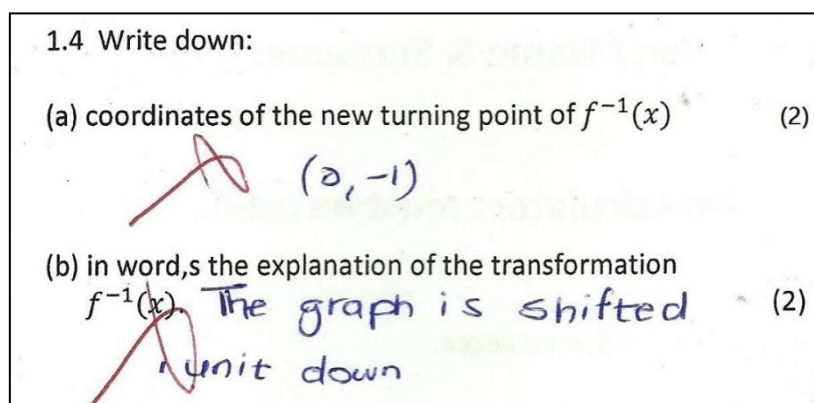 1.4 Write down:
(a) coordinates of the new turning point of f⁻¹(x) (2)
(0, -1)
(b) in word,s the explanation of the transformation
f⁻¹(x). The graph is shifted (2)
1 unit down